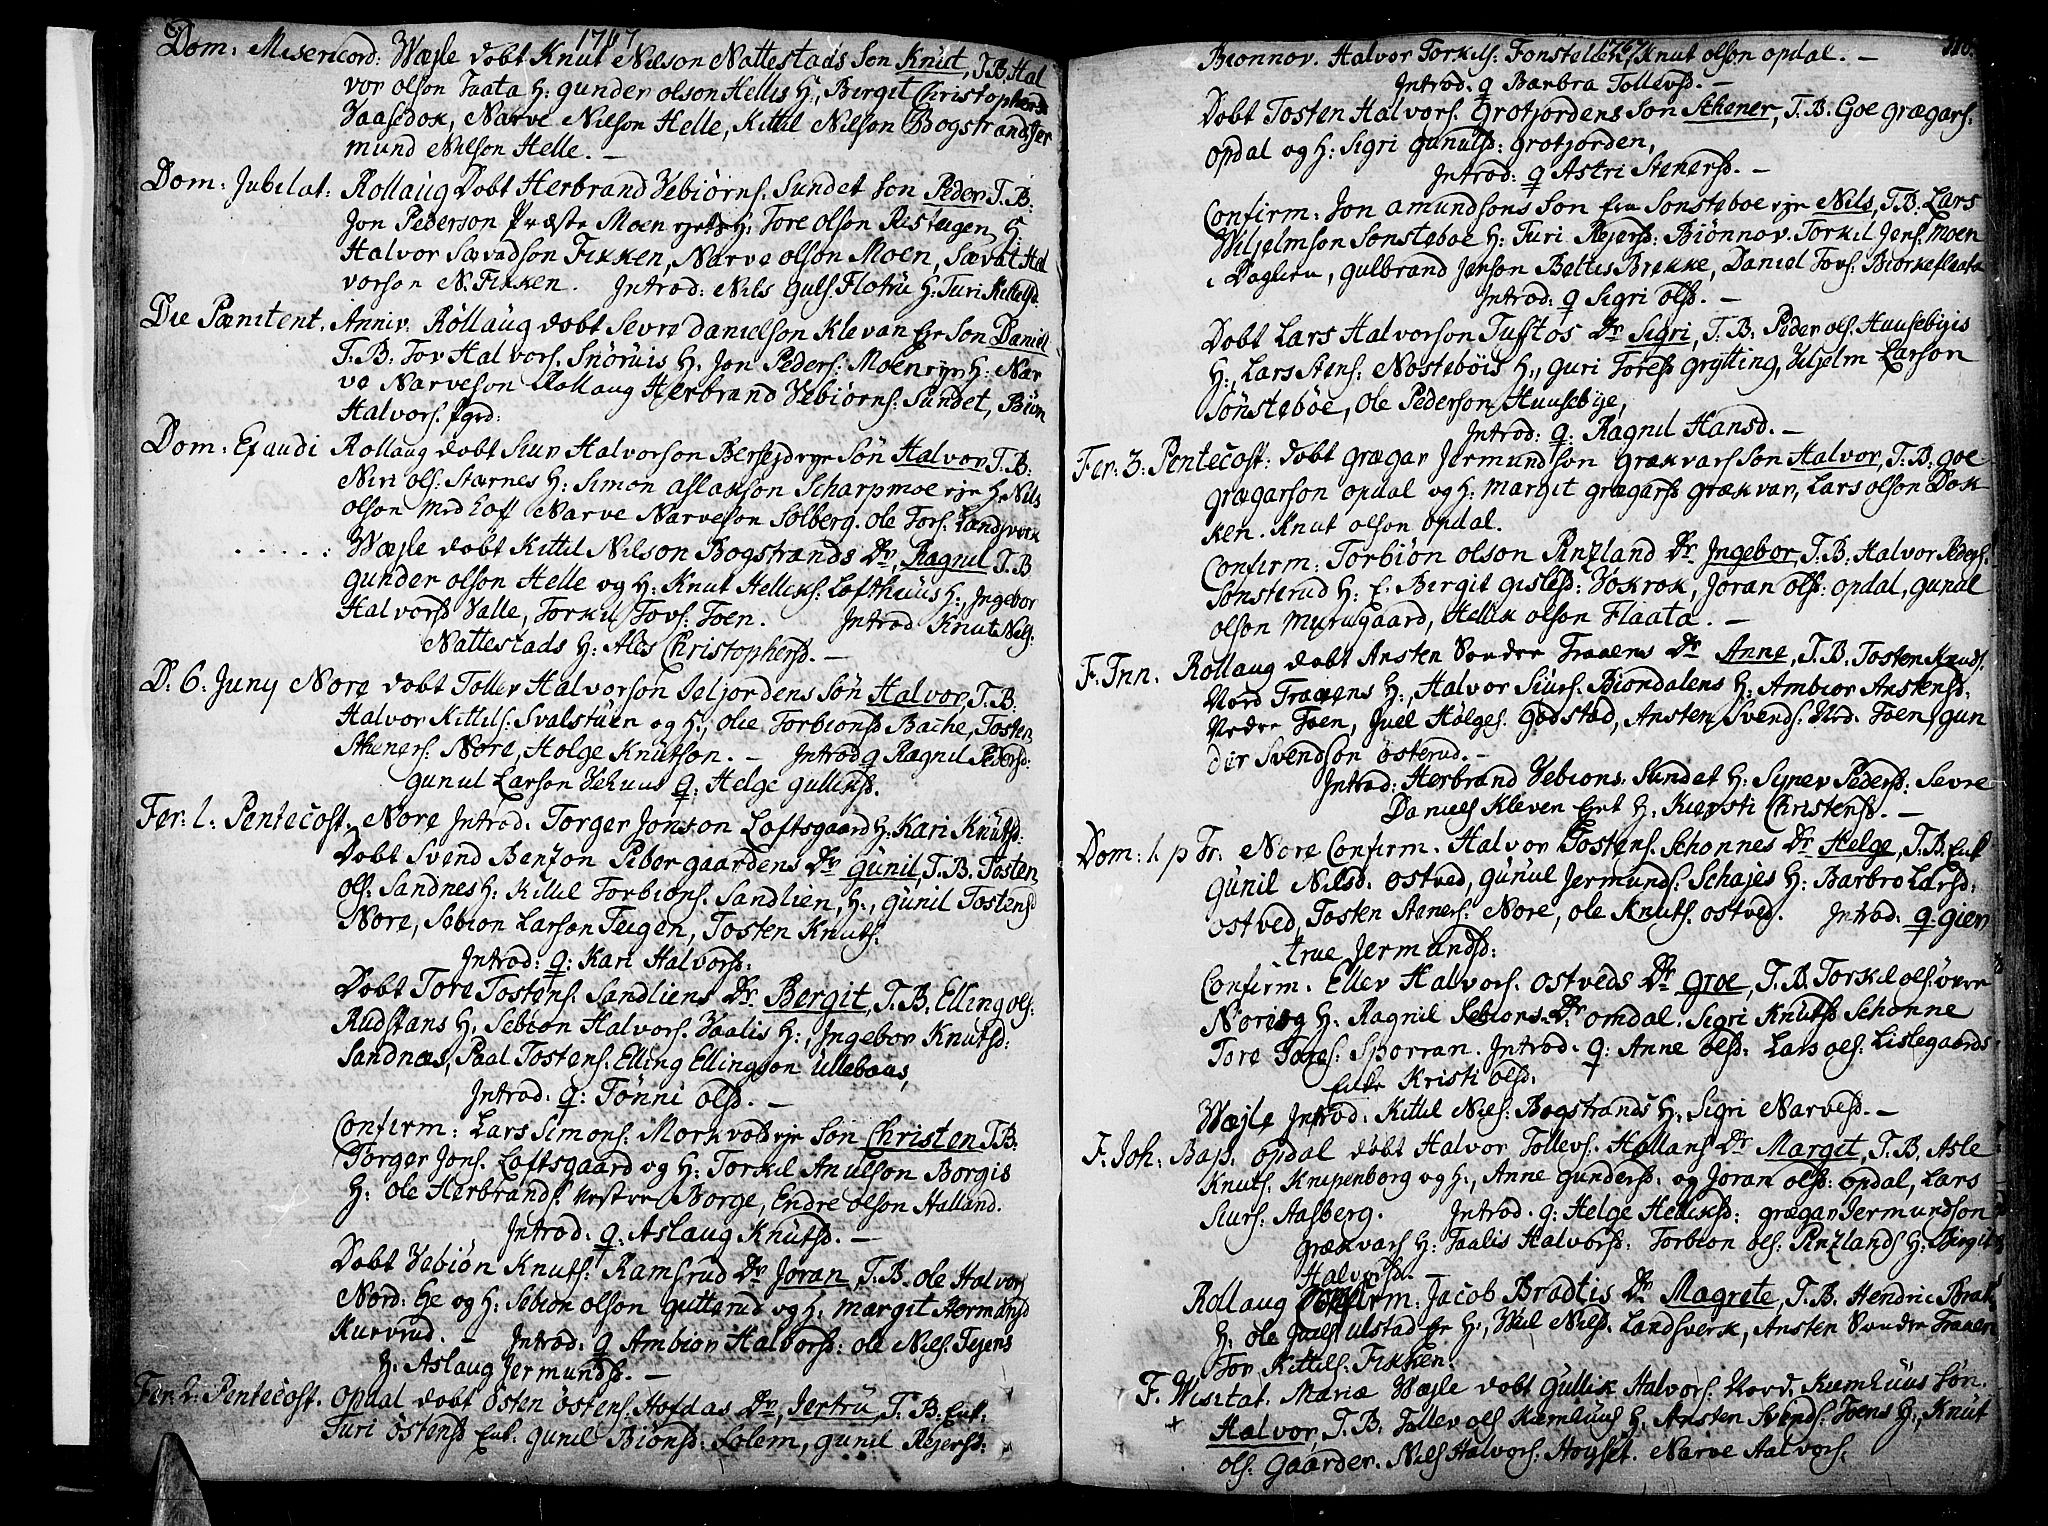 1767
Dom: Misericord: Wæjle dobt Knut Nilson Nattestads Son Knut, T.B. Hal
vor olson Taata H: gunder olson Hellis H:, Birgit Christophersd
Vaasedok, Narve Nilson Helle, Kittil Nilson Bogstrand Jer
mund Nilson Helle. –
Dom: Jubilat: Rollaug Dobt Herbrand Vebiörns: Sundet Son Peder T.B:
Jon Pederson Præste Moen H: Tore olson Risteigen H:
Halvor Sævadson Fikken, Narve olson Moen, Sævat Hal
vorson N. Fikken. Introd: Nils Guls: Flotrü H: Turi Kittilsd
Die Pænitent. Anniv. Röllaug dobt Sevre Danielson Klevan Eje Son Daniel
T.B: Tov Halvors: Snöruis H: Jon Peders: Moen H: Nar
ve Narveson Rollaug Herbrand Vebiörns: Sundet, Biön
Halvors:
Dom: Exaudi Rollaug dobt Siur Halvorson Söն Halvor T.B:
Niri ols: Stærnes H: Simon aslakson Scharpmoe H: Nils
olson Narve Narveson Solberg. ole Tors: Landsverk
. . . . . : Wæjle dobt Kittil Nilson Bogstrands Dr. Ragnil T.B
gunder olson Helle og H: Knut Helliks: Lofthuus H:, Ingebor
Halvorsd Valle, Torkil Tovs: Foen. Introd Knut Nels:
Nattestads H: Ales Christophersd. –
D. 6. Juny Nore dobt Tollev Halvorson Seljordens Sön Halvor, T.B:
Halvor Kittils: Svalstuen og H:, olie Torbionsd Bache, Tosten
Stheners: Nore, Holge Knutson. – Introd q Ragnil Pedersd:
gunul Larson Vehuus q: Helge gulliksd.
Fer: 1: Pentecost. Nore Introd. Torger Jonson Loftsgaard H: Kari Knutsd:
Dobt Svend Benzon Peborgaardens Dr Gunil, T.B. Tosten
ols: Sandnes H: Kittil Torbions: Sandlien, H:, gunil Tostensd
Nore, Sebion Larson Teigen, Tosten Knuts:
Introd: q: Kari Halvorsd:
Dobt Tore Tostens: Sandliens Dr. Bergit, T.B. Elling ols:
Rudstans H: Sebion Halvors: Vaalis H:, Ingebor Knutsd:
Sandnæs, Paal Tostens: Elling Ellingson Ullebaas,
Introd: q: Tönni olsd. –
Confirm: Lars Simons: Morkvold Son Christen T.B:
Torger Jons: Loftsgaard og H: Torkil Amulson Borgis
H: ole Herbrands: Vestre Borge, Endre olson Halland.
Introd: q: Aslaug Knutsd. –
Dobt Vebiön Knuts: Ramsrud Dr Joran, T.B. ole Halvors
Nord: He og H: Sebion olson Gutterud og H: Margit Hermansd
Kurvrud. – Introd: q Ambior Halvorsd: ole Niels: Tejens
H: Aslaug Jermundsd. –
Fer: 2: Pentecost. Opdal dobt Östen Östens: Hofdas Dr, Jertrü, T.B. Enk:
Turi Östensd Enk: Gunil Biönsd: Solem, gunil Rejersd:
1767
Bionnov. Halvor Torkils: Fonstelien, Knut olson opdal. –
Introd: q Barbra Tollevsd. –
Dobt Tosten Halvors: Grotjordens Son Sthener, T.B. Goe grægars:
opdal og H: Sigri gunulsd: grotjorden,
Introd: q Astri Stenersd. –
Confirm: Jon amundsons Son fra Sonsteboe Nils, T.B. Lars
Wiljelmson Sonsteboe H: Turi Rejersd: Biönnov. Torkil Jens: Moen
i Daglien, gulbrand Jenson Bettis Brekke, Daniel Tovs: Biorkeflaata
Introd: q Sigri olsd. –
Dobt Lars Halvorson Tuftos Dr Sigri, T.B: Peder ols: Huusebyis
H:, Lars Stens: Nöstebois H:, guri Toresd grytting, Viljelm Larson
Sönsteböe, ole Pederson Huusebye,
Introd: q: Ragnil Hansd. –
Fer: 3: Pentecost: dobt grægar Jermundson grækvars Son Halvor, T.B: Goe
grægarson opdal og H: Margit grægarsd grækvar, Lars olson Dok
ken. Knut olson opdal.
Confirm: Torbiön olson Pinzland Dr Ingebor, T.B: Halvor Peders:
Sonsterud H: E. Birgit gislesd: Vokrok, Joran olsd: opdal, gunul
olson Myrugaard, Hellik olson Flaata. –
F. Trin. Rollaug dobt Ansten Sønder Traaens Dr Anne, T.B. Tosten Knuds:
Nord Traaens H:, Halvor Siurs: Biondalens H: Ambior Anstensd:
Nedre Foen, Juel Hølges: godstad, Ansten Svends: Nrd. Foen, gun
der Svendson österud. –
Introd: Herbrand Vebions: Sundet H: Synev Pedersd: Sevre
Daniels Kleven H: Kiersti Christensd. –
Dom: 1. p Tr. Nore Confirm. Halvor Tostens: Schonnes Dr Helge, T.B. Enk
Gunil Nilsd: ostved, gunul Jermunds: Schajes H: Barbro Larsd:
ostved, Tosten Steners: Nore, ole Knuts: ostved. Introd: q: gier
true Jermundsd:
Confirm. Ellev Halvors: ostveds Dr Groe, T.B. Torkil ols: övre
Nore og H: Ragnil Sebions Dr: omdal. Sigri Knutsd Schonne
Tore Tores: Sporran. Introd. q: Anne olsd: Lars ols: Lislegaards
Enke Kristi olsd.
Wæjle Introd: Kittil Niels: Bogstrands H: Sigri Narvesd. –
F. Joh: Bap. opdal dobt Halvor Tollevs: Hollans Dr Margit, T.B. Asle
Knuts: Knipenborg og H:, Anne Gundersd: og Joran olsd: opdal, Lars
Siurs: Aasberg. Introd. q: Helge Helliksd: grægar Jermundson
grækvars H: Taalis Halvorsd: Torbion ols: Pinzlands H: Birgit
Halvorsd. –
Rollaug Confirm: Jacob Bradtis Dr Magrete, T.B. Hendric Brat
H: ole Juels: ulstad H:, Niels: Landsverk, Ansten Sønder Traaen
Tov Kittils: Fikken:
F. Wisitat. Mariæ Wæjle dobt Gullik Halvors: Nord. Kiemhuus Sön.
+ Halvor, T.B. Tollev ols Kæmhuus H: Ansten Svends: Foens H:, Knut
ols: Gaarder. Niels Halvors: Hoyset. Narve Halvors: